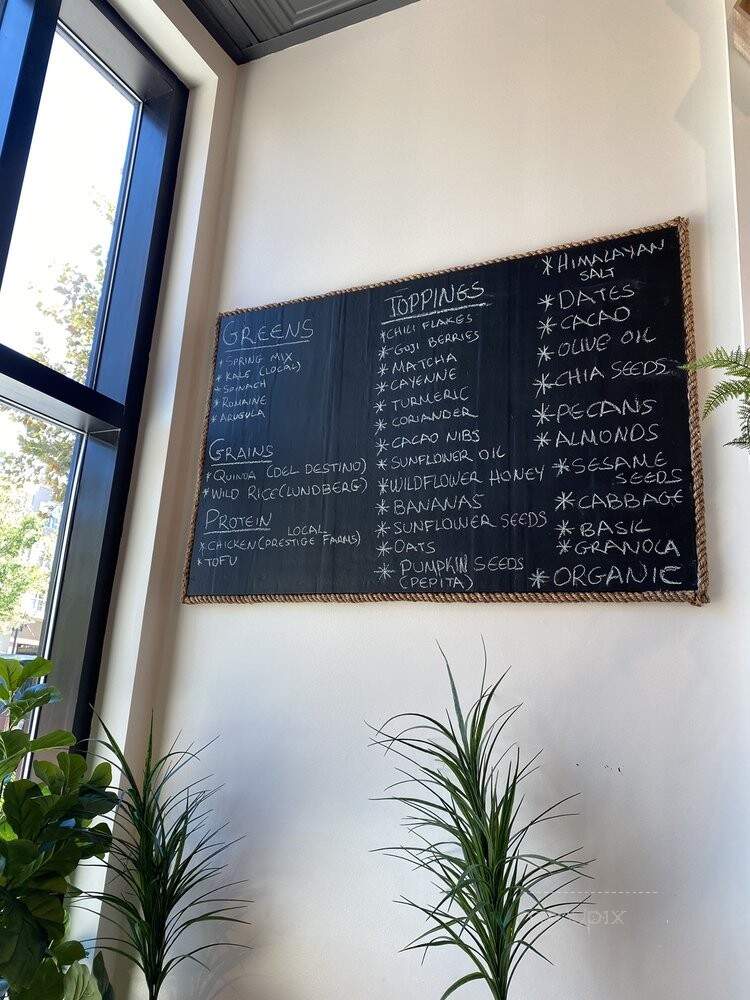 GREENS
* SPRING MIX
* KALE (LOCAL)
* SPINACH
* ROMAINE
* ARUGULA
GRAINS
* QUINOA (DEL DESTINO)
* WILD RICE (LUNDBERG)
PROTEIN
LOCAL
* CHICKEN (PRESTIGE FARMS)
* TOFU
TOPPINGS
* CHILI FLAKES
* GOJI BERRIES
* MATCHA
* CAYENNE
* TURMERIC
* CORIANDER
* CACAO NIBS
* SUNFLOWER OIL
* WILDFLOWER HONEY
* BANANAS
* SUNFLOWER SEEDS
* OATS
* PUMPKIN SEEDS
(PEPITA)
* HIMALAYAN
SALT
* DATES
* CACAO
* OLIVE OIL
* CHIA SEEDS
* PECANS
* ALMONDS
* SESAME
SEEDS
* CABBAGE
* BASIL
* GRANOLA
* ORGANIC